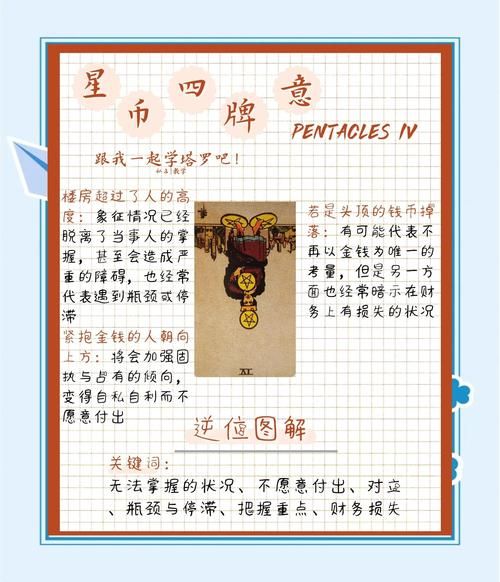 星币四牌意
PENTACLES IV
跟我一起学塔罗吧！
楼房超过了人的高
度：象征情况已经
脱离了当事人的掌
握，甚至会造成严
重的障碍，也经常
代表遇到瓶颈或停
滞
紧抱金钱的人朝向
上方：将会加强固
执与占有的倾向，
变得自私自利而不
愿意付出
若是头顶的钱币掉
落：有可能代表不
再以金钱为唯一的
考量，但是另一方
面也经常暗示在财
务上有损失的状况
IV
逆位图解
关键词：
无法掌握的状况、不愿意付出、对立
、瓶颈与停滞、把握重点、财务损失